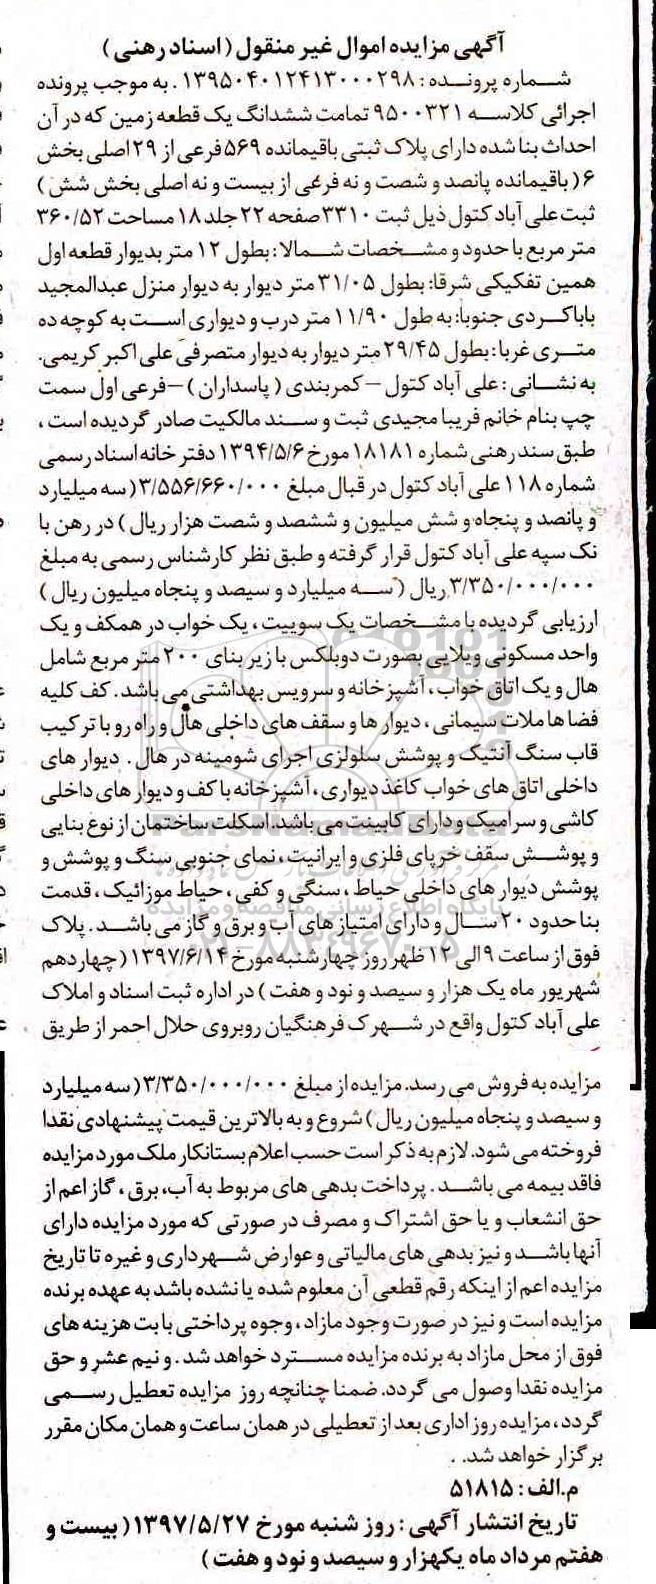 آگهی مزایده اموال غیر منقول (اسناد رهنی)
شماره پرونده: ۱۳۹۵۰۴۰۱۲۴۱۳۰۰۰۲۹۸. به موجب پرونده
اجرائی کلاسه ۹۵۰۰۳۲۱ تمامت ششدانگ یک قطعه زمین که در آن
احداث بنا شده دارای پلاک ثبتی باقیمانده ۵۶۹ فرعی از ۲۹ اصلی بخش
۶ (باقیمانده پانصد و شصت و نه فرعی از بیست و نه اصلی بخش شش)
ثبت علی آباد کتول ذیل ثبت ۳۳۱۰ صفحه ۲۲ جلد ۱۸ مساحت ۳۶۰/۵۲
متر مربع با حدود و مشخصات شمالا: بطول ۱۲ متر بدیوار قطعه اول
همین تفکیکی شرقا: بطول ۳۱/۰۵ متر دیوار به دیوار منزل عبدالمجید
باباکردی جنوبا: به طول ۱۱/۹۰ متر درب و دیواری است به کوچه ده
متری غربا: بطول ۲۹/۴۵ متر دیوار به دیوار متصرفی علی اکبر کریمی.
به نشانی: علی آباد کتول – کمربندی (پاسداران) – فرعی اول سمت
چپ بنام خانم فریبا مجیدی ثبت و سند مالکیت صادر گردیده است،
طبق سند رهنی شماره ۱۸۱۸۱ مورخ ۱۳۹۴/۵/۶ دفتر خانه اسناد رسمی
شماره ۱۱۸ علی آباد کتول در قبال مبلغ ۳/۵۵۶/۶۶۰/۰۰۰ (سه میلیارد
و پانصد و پنجاه و شش میلیون و ششصد و شصت هزار ریال) در رهن با
نک سپه علی آباد کتول قرار گرفته و طبق نظر کارشناس رسمی به مبلغ
۳/۳۵۰/۰۰۰/۰۰۰ ریال (سه میلیارد و سیصد و پنجاه میلیون ریال)
ارزیابی گردیده با مشخصات یک سوییت، یک خواب در همکف و یک
واحد مسکونی ویلایی بصورت دوبلکس با زیر بنای ۲۰۰ متر مربع شامل
هال و یک اتاق خواب، آشپزخانه و سرویس بهداشتی می باشد. کف کلیه
فضاها ملات سیمانی، دیوار ها و سقف های داخلی هال و راه رو با ترکیب
قاب سنگ آنتیک و پوشش سلولزی اجرای شومینه در هال. دیوار های
داخلی اتاق های خواب کاغذ دیواری، آشپزخانه با کف و دیوار های داخلی
کاشی و سرامیک و دارای کابینت می باشد. اسکلت ساختمان از نوع بنایی
و پوشش سقف خرپای فلزی و ایرانیت، نمای جنوبی سنگ و پوشش و
پوشش دیوار های داخلی حیاط، سنگی و کفی، حیاط موزائیک، قدمت
بنا حدود ۲۰ سال و دارای امتیاز های آب و برق و گاز می باشد. پلاک
فوق از ساعت ۹ الی ۱۲ ظهر روز چهارشنبه مورخ ۱۳۹۷/۶/۱۴ (چهاردهم
شهریور ماه یک هزار و سیصد و نود و هفت) در اداره ثبت اسناد و املاک
علی آباد کتول واقع در شهرک فرهنگیان روبروی حلال احمر از طریق
مزایده به فروش می رسد. مزایده از مبلغ ۳/۳۵۰/۰۰۰/۰۰۰ (سه میلیارد
و سیصد و پنجاه میلیون ریال) شروع و به بالاترین قیمت پیشنهادی نقدا
فروخته می شود. لازم به ذکر است حسب اعلام بستانکار ملک مورد مزایده
فاقد بیمه می باشد. پرداخت بدهی های مربوط به آب، برق، گاز اعم از
حق انشعاب و یا حق اشتراک و مصرف در صورتی که مورد مزایده دارای
آنها باشد و نیز بدهی های مالیاتی و عوارض شهرداری و غیره تا تاریخ
مزایده اعم از اینکه رقم قطعی آن معلوم شده یا نشده باشد به عهده برنده
مزایده است و نیز در صورت وجود مازاد، وجوه پرداختی بابت هزینه های
فوق از محل مازاد به برنده مزایده مسترد خواهد شد. و نیم عشر و حق
مزایده نقدا وصول می گردد. ضمنا چنانچه روز مزایده تعطیل رسمی
گردد، مزایده روز اداری بعد از تعطیلی در همان ساعت و همان مکان مقرر
برگزار خواهد شد. .
م.الف: ۵۱۸۱۵
تاریخ انتشار آگهی: روز شنبه مورخ ۱۳۹۷/۵/۲۷ (بیست و
هفتم مرداد ماه یکهزار و سیصد و نود و هفت)